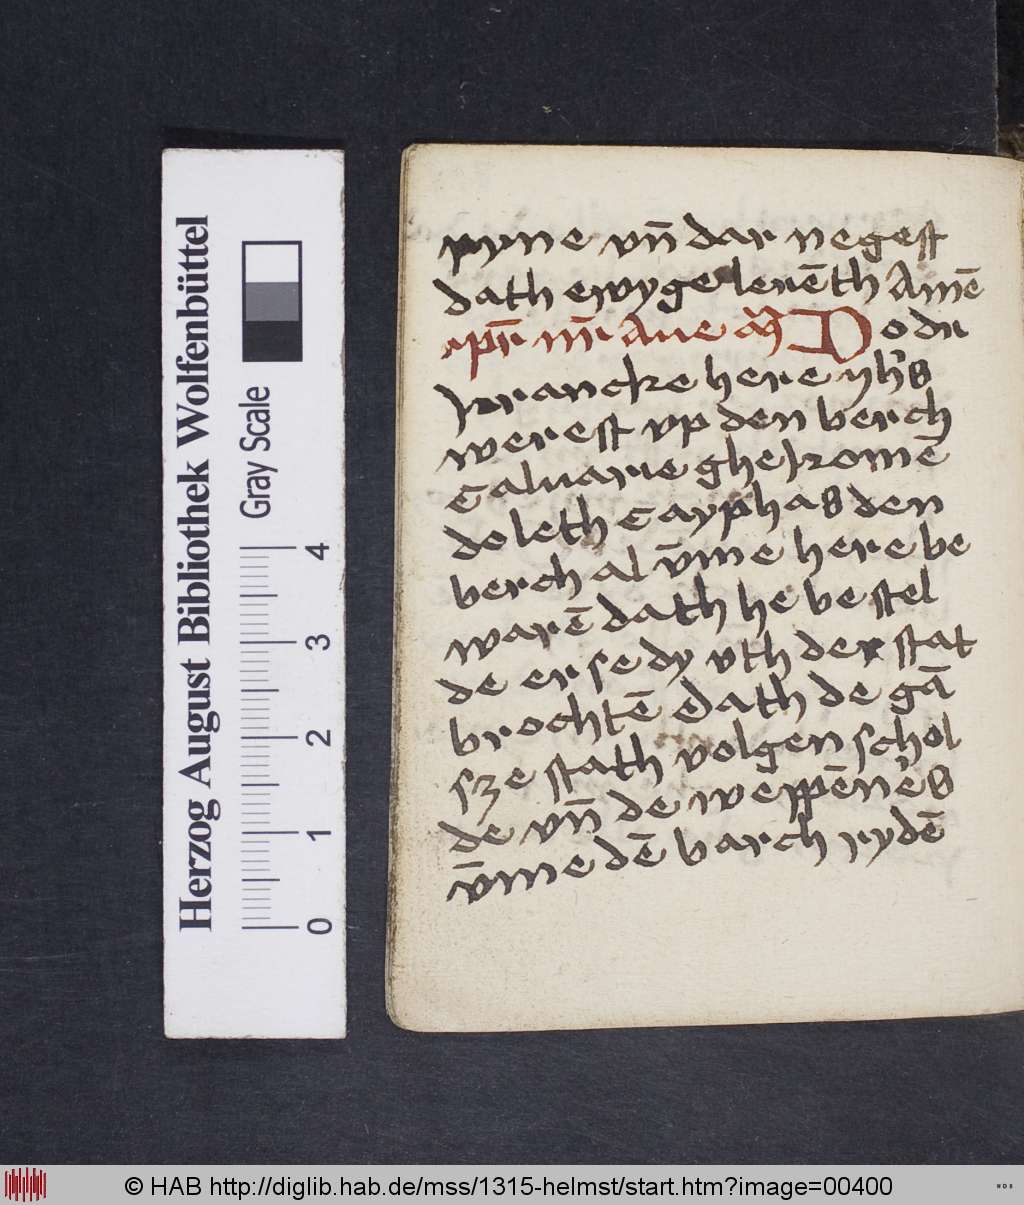 pyne vn̄ dar negest
dath ewyge leuēth Amē
ıpr̄ nr̄ Aue M̄ Do du
krancke here yh's
werest vp den berch
Caluarie ghekomē
do leth Cayphas den
berch al v̄mme here be
warē dath he bestel
de er se dy vth der stat
brochtē dath de gā
sze stath volgen schol
de vn̄ de weppēn's
v̄me dē barch rydē
Herzog August Bibliothek Wolfenbüttel
Gray Scale
0 1 2 3 4
© HAB http://diglib.hab.de/mss/1315-helmst/start.htm?image=00400